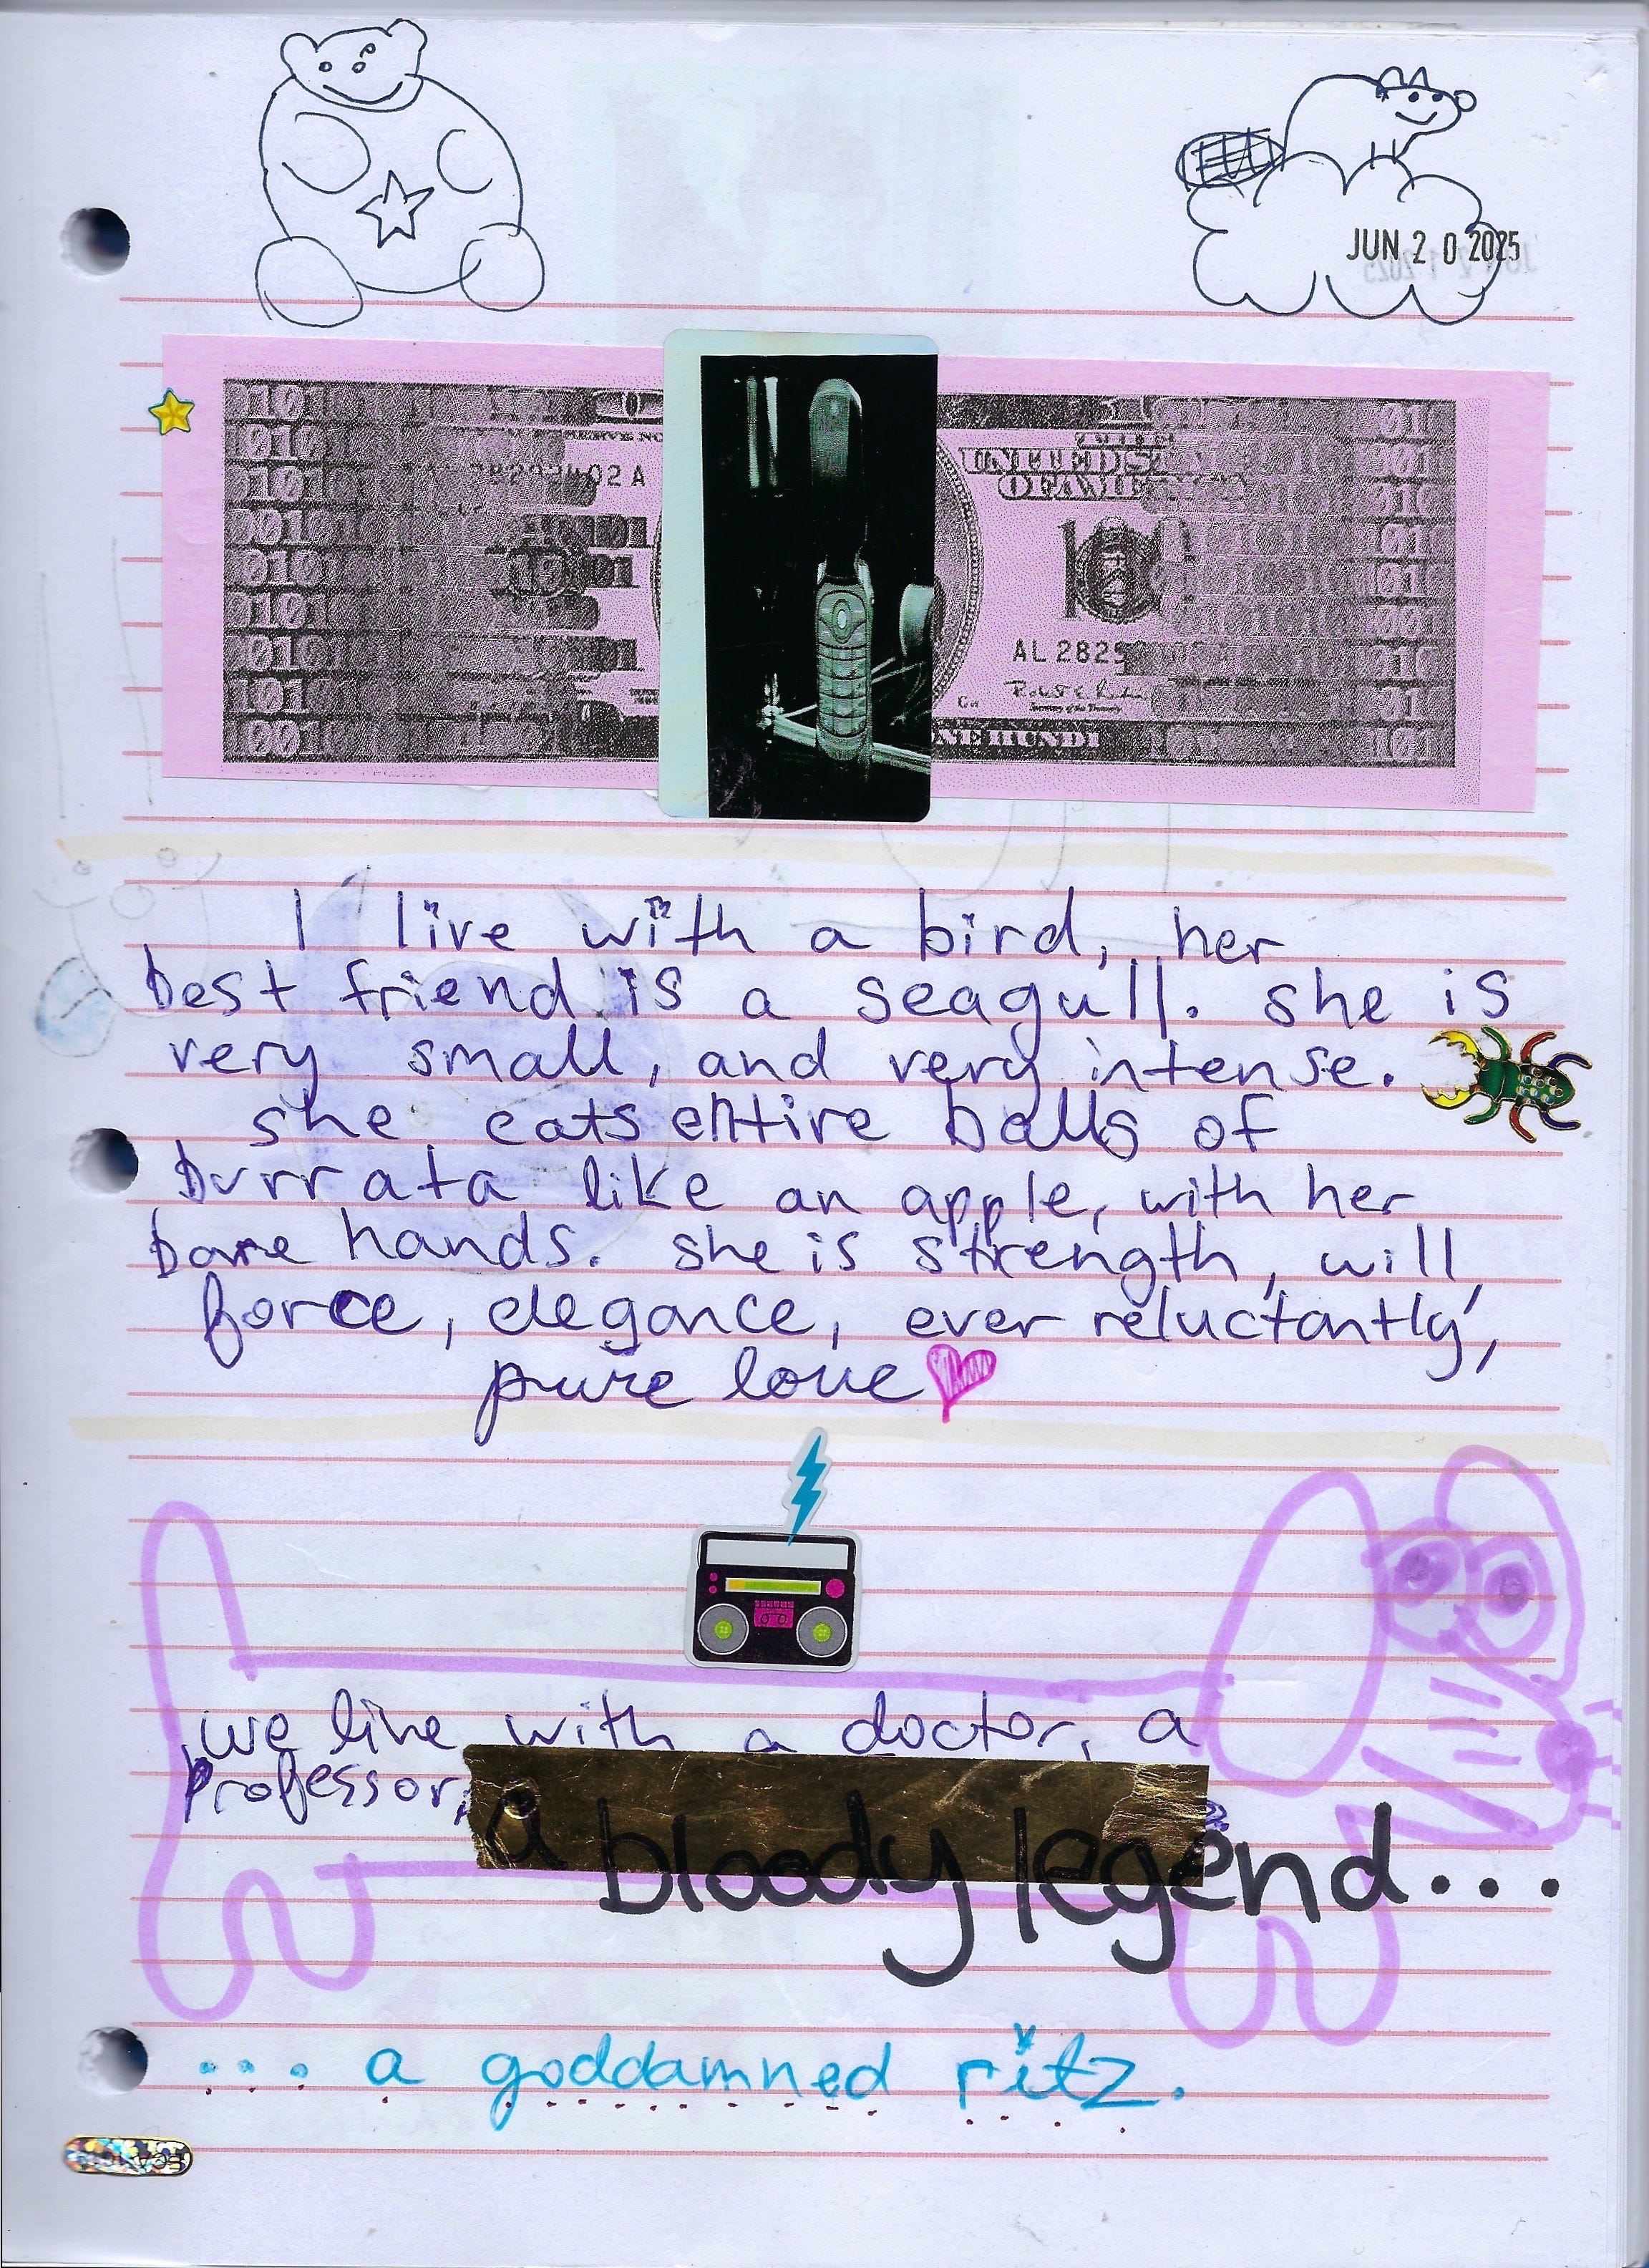 JUN 20 2025
UNITED S
OF AME
100
AL 2829
NE HUNDR
I live with a bird, her
best friend is a seagull. she is
very small, and very intense.
she eats entire balls of
burrata like an apple, with her
bare hands. she is strength, will,
force, elegance, ever reluctantly,
pure love
we live with a doctor, a
professor,
a bloody legend...
... a goddamned ritz.